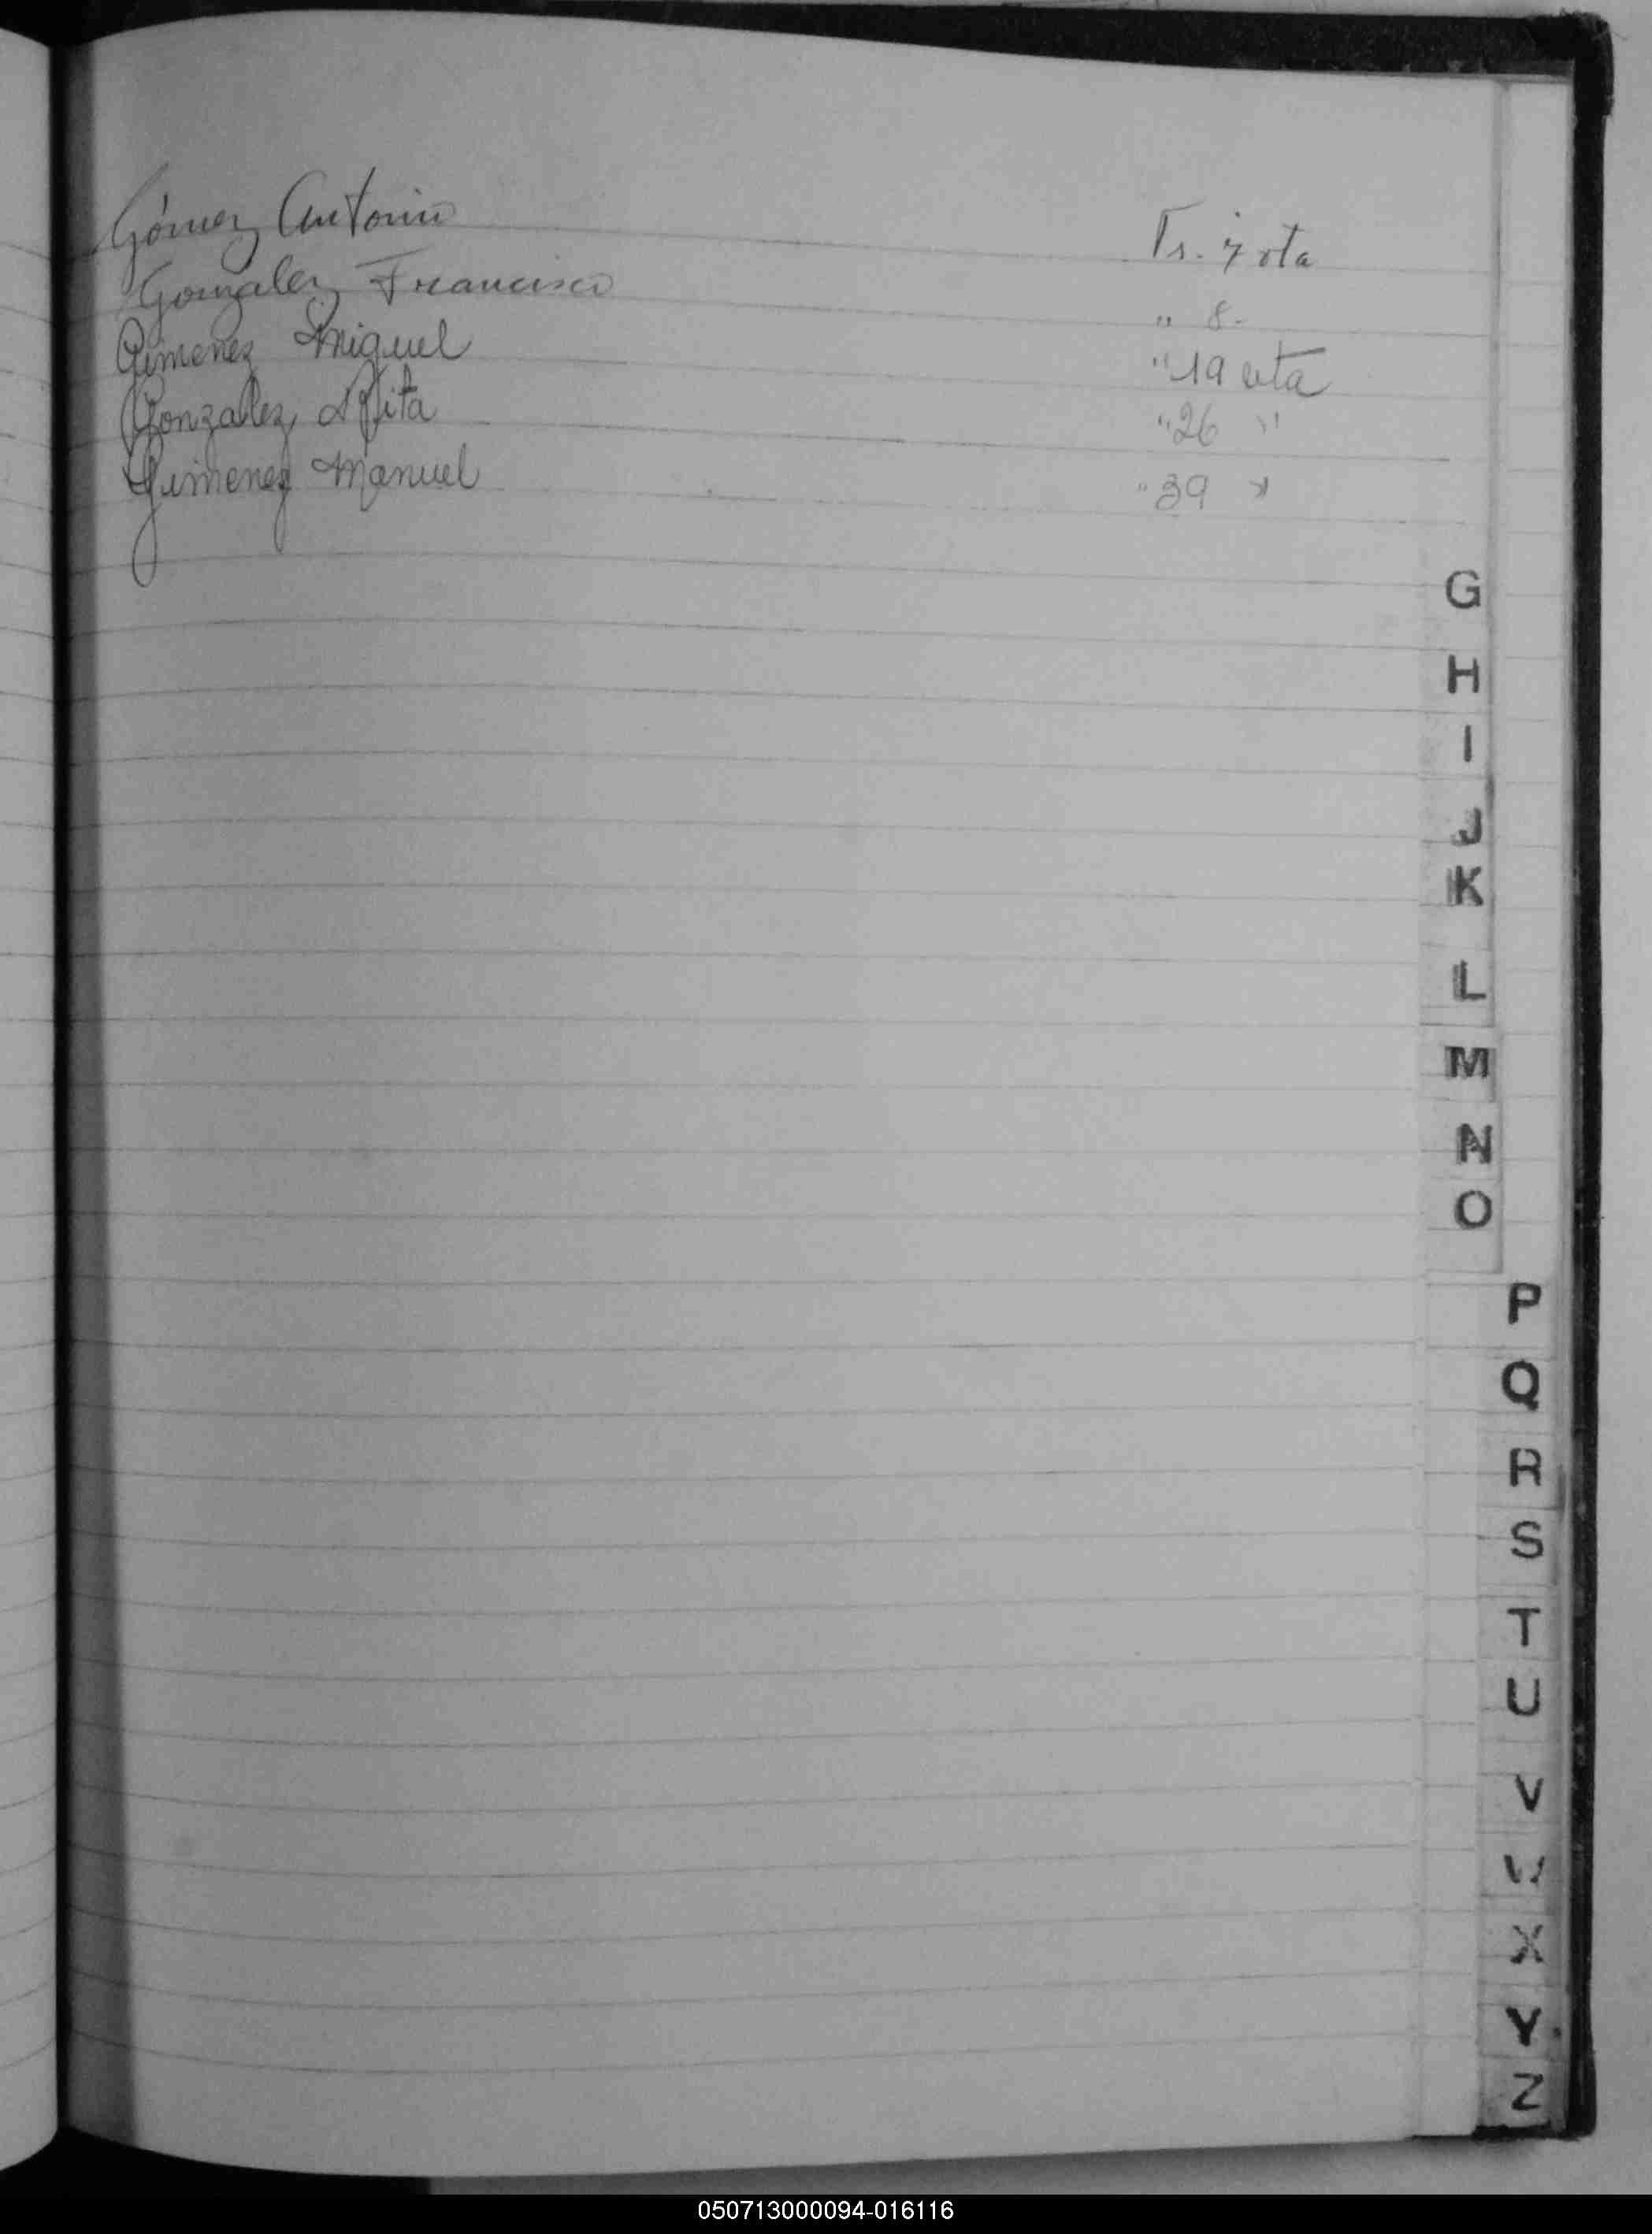 Gómez Antonio Fs. 7 vta
Gonzalez Francisco " 8-
Gimenez Miguel " 19 vta
Gonzalez Rita " 26 "
Gimenez Manuel " 39 "
G
H
I
J
K
L
M
N
O
P
Q
R
S
T
U
V
W
X
Y
Z
050713000094-016116